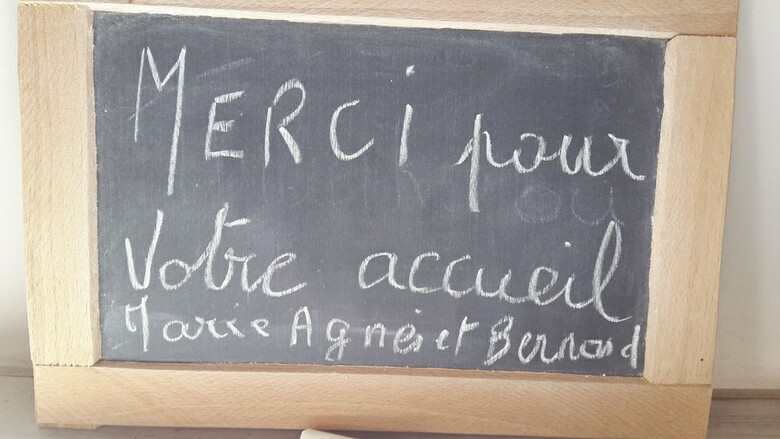 MERCI pour
Votre accueil
Marie Agnès et Bernard